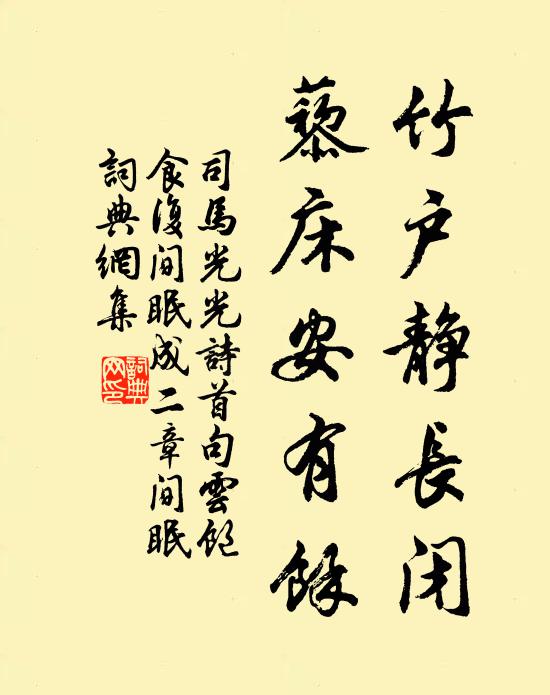 竹户静長闭
藜床安有餘
司馬光光詩首句雲飽
食復间眠成二章间眠
詞典網集
詞典
网印